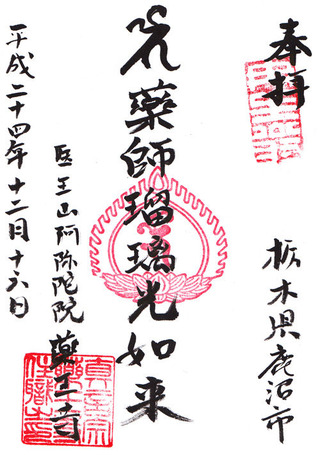 奉拝
栃木県鹿沼市
薬師瑠璃光如来
医王山阿弥陀院
薬王寺
平成二十四年十二月十六日